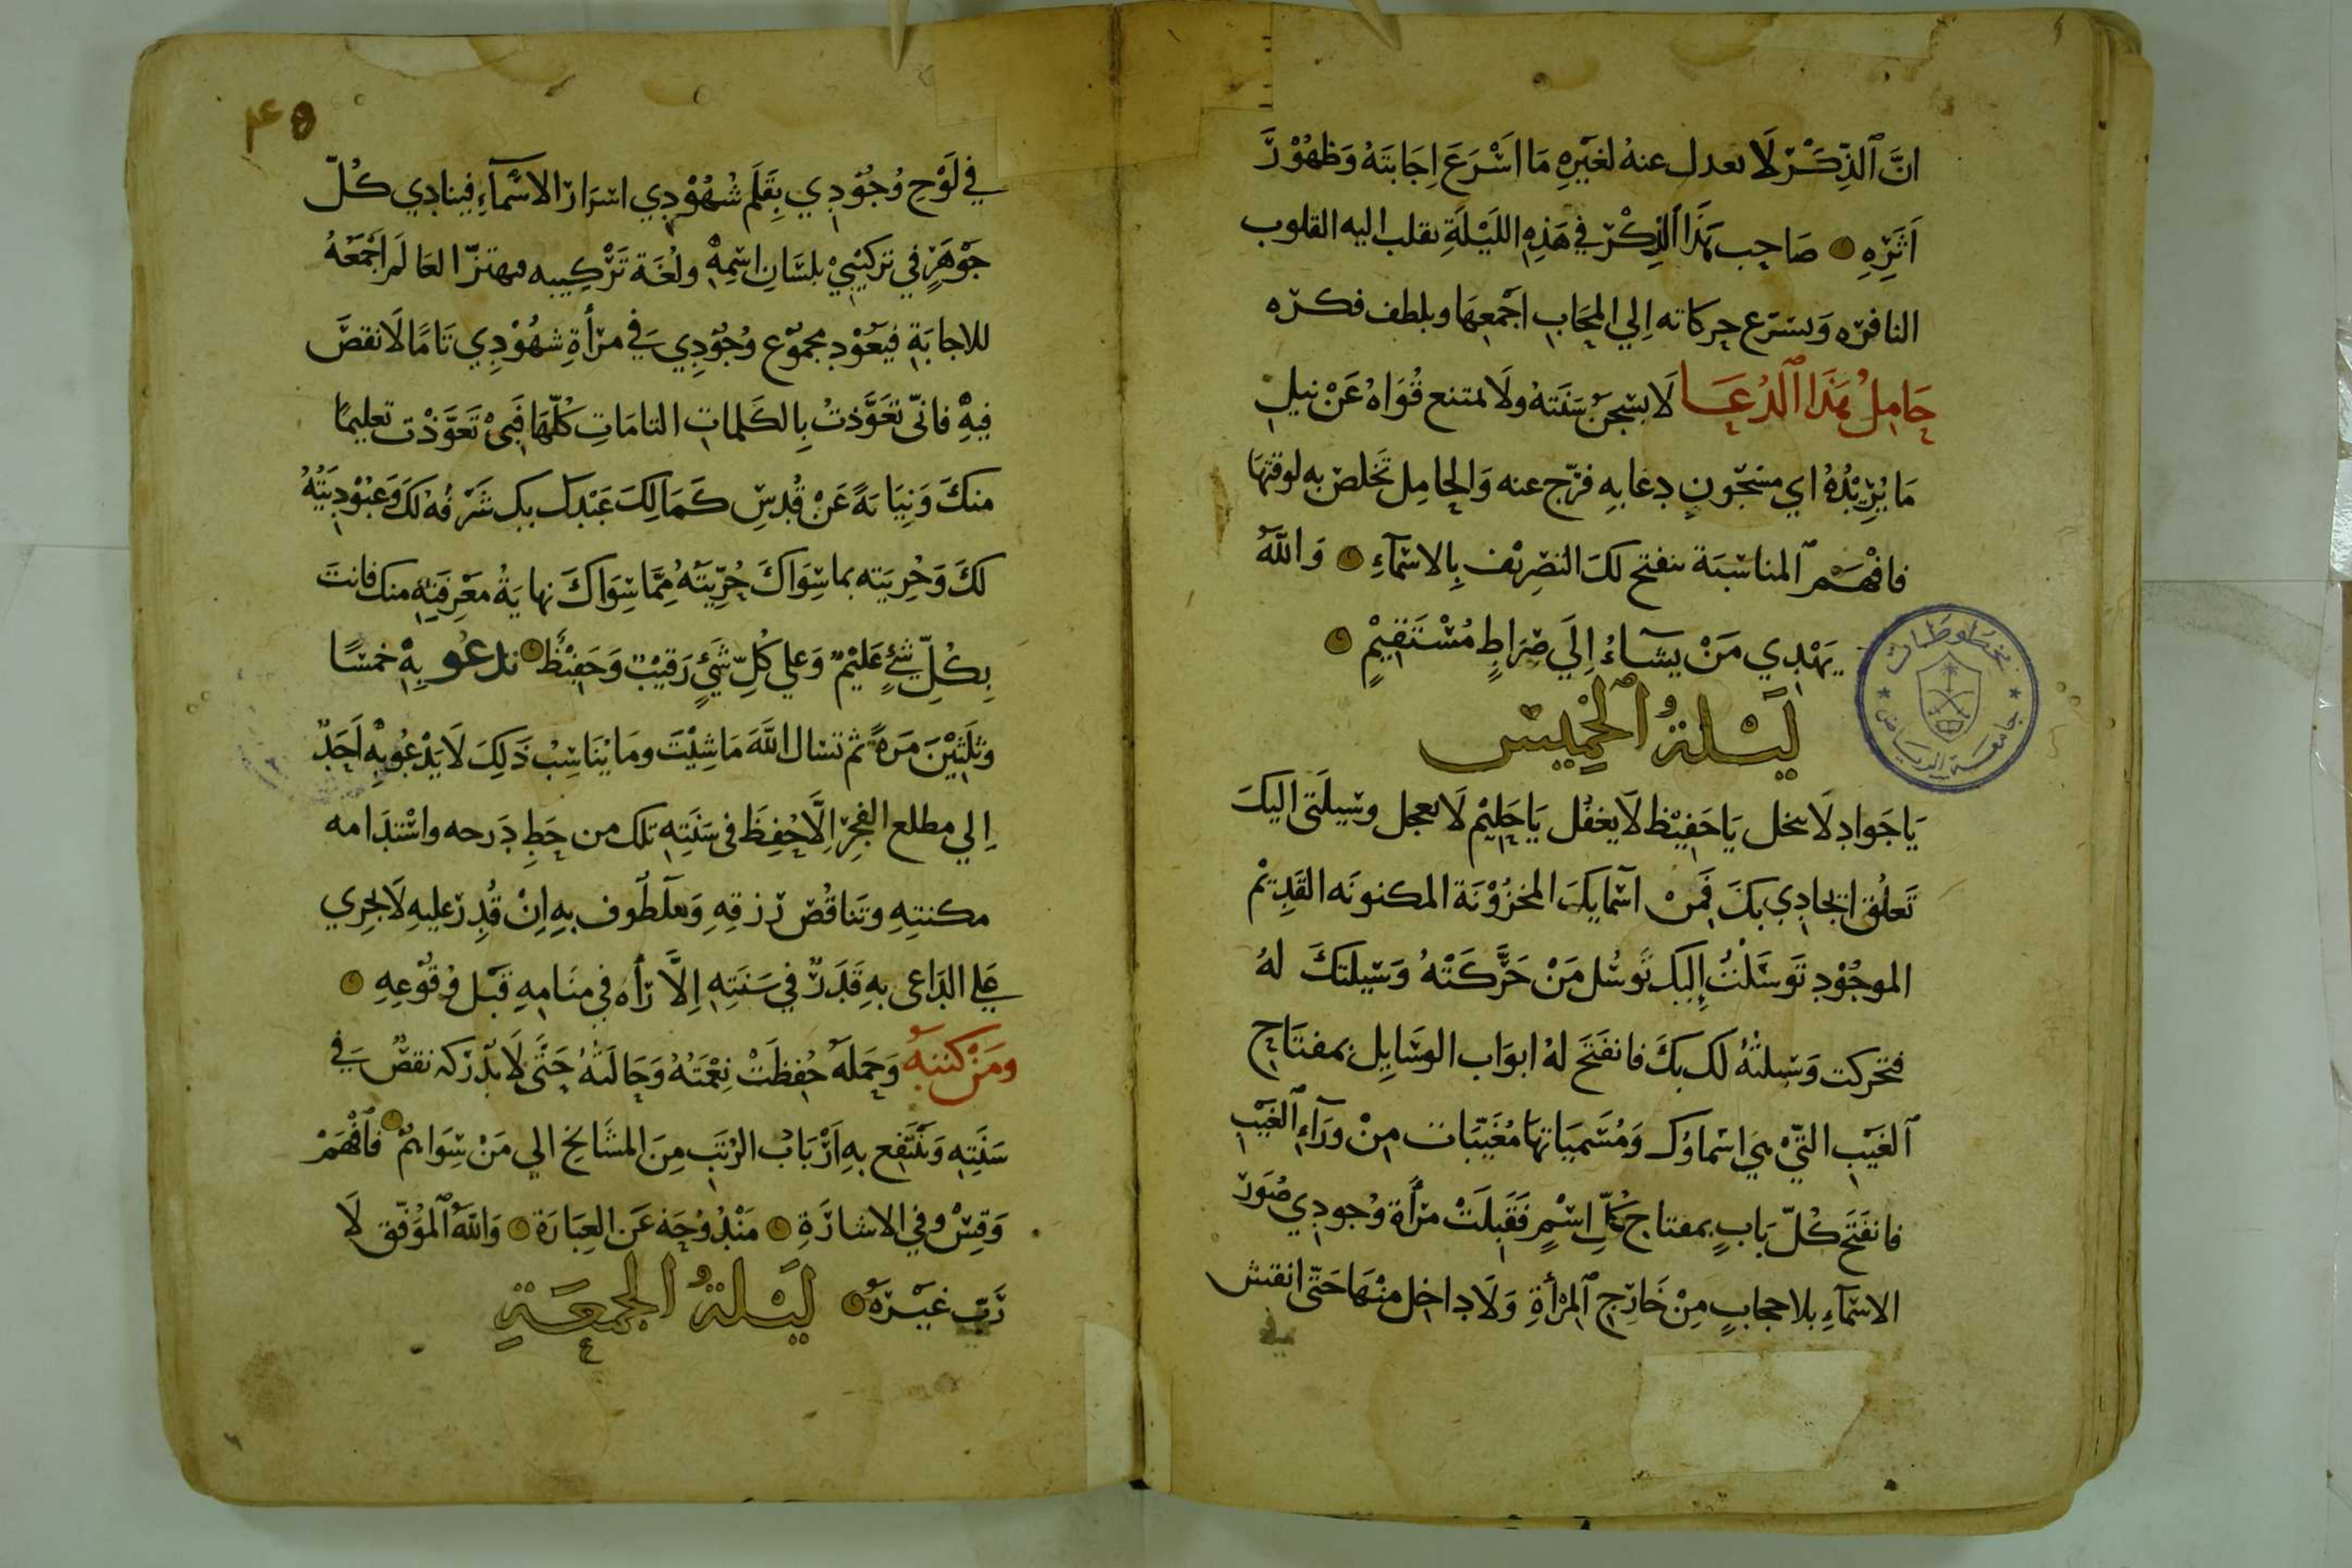 انَّ الذِّكْر لَا تعدل عنهُ لغَيْرِهِ مَا اَسْرَعَ اِجَابَتَهُ وَظهُوْرَ
اَثَرِهِ صَاحِب هَذَا الذِّكْر في هَذِهِ اللَيْلَةِ تقلب اليه القلوب
النافره وَيسرع حركاته اِلي المحَاب اَجْمعِهَا ويلطف فكره
حَامِلُ هَذَا الدُعَا لَا يسْجنُ سَنَتهُ ولَا يمتنع قُوَاهُ عَنْ نيلِ
مَا يُرِيْدُهُ اي مسْجُونٍ دعَا بهِ فرّج عنه وَالحَامِل تخلص به لوقتهَا
فافْهَم المناسَبَة ينفتح لكَ التصْرِيْف بِالاسْمَآءِ وَاللّهُ
يَهْدِي مَنْ يشَآءُ اِلَي صِرَاطٍ مُسْتَقِيْمٍ
لَيْلةُ الخَمِيْس
يَا جَواد لَا يبخل يَا حَفِيْظ لَا يغفُل يَا حَلِيْم لَا يعجل وسِيلَتي اليكَ
تَعلُق اتحادِي بكَ فَمِنْ اسْمَايكَ المخزُوْنَة المكنونَه القَدِيْم
الموجُوْدِ تَوسَّلْتُ اِليكَ تَوسُل مَنْ حَرَّكَتْهُ وَسِيلتكَ لهُ
فتحركت وَسِيلتهُ لك بكَ فانفَتَحَ لهُ ابوَاب الوسَايِل بمفتَاح
الغَيْب التيْ هي اسْماوُك وَمُسَمياتهَا مُغَيَّبَات مِنْ ورَآءِ الغَيْب
فانفَتَح كُلّ بَابٍ بمفتاح كُلِّ اسْمٍ فَقَبِلَتْ مرْأة وُجودِي صُوَرَ
الاسْمَآءِ بلاحجابٍ مِنْ خَارِج المرْأةِ وَلَا داخِل منْهَا حَتّى انقش
في
٤٥
في لَوْح وُجُوْدِي بِقَلَم شُهُوْدِي اسْرَار الاسْمَآءِ فينَادِي كُلّ
جَوْهَرٍ في تركيْبِيْ بلسَانِ اسْمِهِ ولُغَة تَرْكِيبه فيهتزّ العَالَم اَجْمَعهُ
للاجابَةِ فيَعُوْد مجمُوْع وُجُوْدِي في مرْأةِ شهُوْدِي تَامًا لَا نقصَ
فيهِ فانّى تعَوَّذتُ بِالكَلمات التامَاتِ كُلّهَا فَبيْ تَعَوَّذْت تعليمًا
منكَ وَنِيَابَةً عَنْ قُدسِ كَمَالِكَ عَبْدك بك شَرَفُه لَكَ وَعبُوْدِيَتُهُ
لكَ وَحُرِيَته بما سِوَاكَ حُرِّيَتَهُ مِمَّا سِوَاكَ نهايَةُ مَعْرِفَتِهِ منك فانتَ
بِكُلِّ شَيءٍ عَليْمٌ وَعلي كُلِّ شَيءٍ رَقيْبٌ وَحَفِيْظٌ تدعُو بِهِ خمْسًا
وثَلَثِيْنَ مَرهً ثم تسَال اللَّهَ مَا شِيْتَ ومَا يْنَاسِبُ ذَلِكَ لَا يَدْعُوبِهِ اَحَدٌ
اِلي مطلع الفجْرِ اِلَّا حُفِظَ في سَنَتِهِ تلك من حَطِ دَرجه واسْتدَامه
مكنتِهِ وتَناقُصْ رزقِهِ وَملَطُوف بهِ اِنْ قُدِرَ عليهِ لَا يجْرِي
عَلي الدَاعى بهِ قَدَرٌ في سَنَتِهِ اِلَّا رَأهُ في منَامِهِ قَبْل وُقُوْعِهِ
ومَنْ كتبهُ وَحَملَهُ حُفِظَتْ نِعْمَتُهُ وَحَالَتهُ حَتَّى لَا يدْركه نقصٌ في
سَنَتِهِ وَيَنْتَفِع بهِ اَرْبَابُ الرُتَبِ مِنَ المشَايخ الي مَنْ سِوَاهُمْ فَافْهَمْ
وَقِسْ وفي الاشارَةِ مَنْدُوْحَة عَن العِبَارَة وَاللّهُ المُوَفّق لَا
رَبّ غيْرَهُ لَيْلةُ الجمعَةِ
مخطوطات
جامعة الرياض